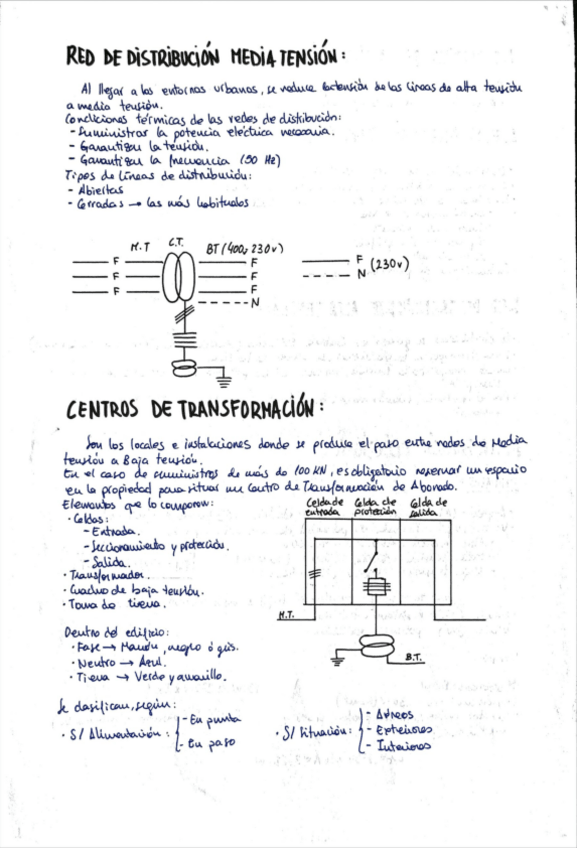 RED DE DISTRIBUCIÓN MEDIA TENSIÓN:
Al llegar a los entornos urbanos, se reduce la tensión de las líneas de alta tensión
a media tensión.
Condiciones térmicas de las redes de distribución:
- Suministrar la potencia eléctrica necesaria.
- Garantizar la tensión.
- Garantizar la frecuencia (50 Hz)
Tipos de líneas de distribución:
- Abiertas
- Cerradas → las más habituales
M.T C.T. BT (400, 230v)
F F F (230v)
F F N
F F
N
CENTROS DE TRANSFORMACIÓN:
Son los locales e instalaciones donde se produce el paso entre redes de Media
tensión a Baja tensión.
En el caso de suministros de más de 100 KN, es obligatorio reservar un espacio
en la propiedad para situar un Centro de Transformación de Abonado.
Elementos que lo componen:
· Celdas:
- Entrada.
- Seccionamiento y protección.
- Salida.
· Transformador.
· Cuadro de baja tensión.
· Toma de tierra.
Celda de entrada
Celda de protección
Celda de salida
M.T.
B.T.
Dentro del edificio:
· Fase → Marrón, negro ó gris.
· Neutro → Azul.
· Tierra → Verde y amarillo.
Se clasifican, según:
· S/ Alimentación:
- En punta
- En paso
· S/ Situación:
- Aéreos
- Exteriores
- Interiores